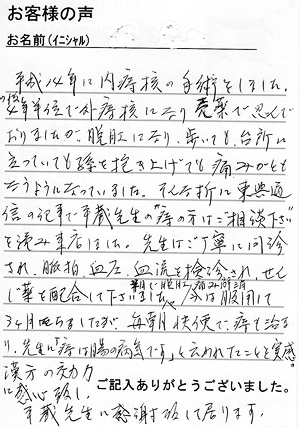 お客様の声
お名前(イニシャル)
平成14年に内痔核の手術をしました。
その後
4年半位で外痔核になり売薬で忍んで
おりましたが、脱肛になり、歩いても、台所に
立っていても孫を抱き上げても痛みがとも
なうようになっていました。そんな折に東奥通
信の記事で 先生の"痔の方はご相談下さい"
を読み来店しました。先生はご丁寧に問診
され、脈拍、血圧、血流を検診され、せん
じ薬を配合して下さいました。今は服用して
3ヶ月 ちましたが、毎朝快便で、痔も治まり
、先生に「痔は腸の病気です」と云われたことを実感。
漢方の効力
に感心致し、
ご記入ありがとうございました。
先生に感謝致して居ります。